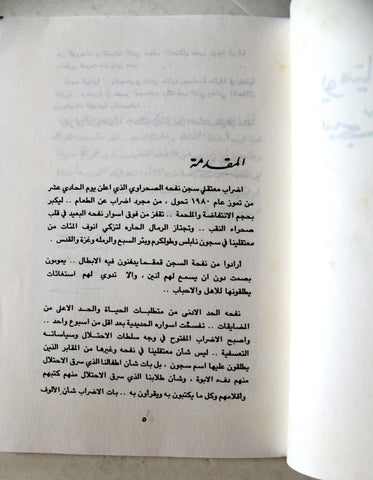 المقدمة
اضراب معتقلي سجن نفحه الصحراوي الذي اعلن يوم الحادي عشر
من تموز عام ١٩٨٠ تحول ، من مجرد اضراب عن الطعام .. ليكبر
بحجم الانتفاضة والملحمة .. تقفز من فوق اسوار نفحه البعيد في قلب
صحراء النقب .. وتجتاز الرمال الحاره لتزكي انوف المئات من
معتقلينا في سجون نابلس وطولكرم وبئر السبع والرمله وغزة والقدس .
أرادوا من نفحة السجن قمقما يدفنون فيه الابطال .. يموتون
بصمت دون ان يسمع لهم أنين ، ولا تدوي لهم استغاثات
يطلقونها للاهل والاحباب ..
نفحه الحد الادنى من متطلبات الحياة والحد الاعلى من
المضايقات .. تفسخت اسواره الحديدية بعد اقل من اسبوع واحد ..
واصبح الاضراب المفتوح في وجه سلطات الاحتلال وسياساته
التعسفية .. ليس شأن معتقلينا في نفحه وغيرها من المقابر الذين
يطلقون عليها اسم سجون .. بل بات شأن اطفالنا الذي سرق الاحتلال
منهم دفء الابوة ، وشأن طلابنا الذي سرق الاحتلال منهم كتبهم
وأقلامهم وكل ما يكتبون به ويقرأون به .. بات الاضراب شأن الألوف
٥